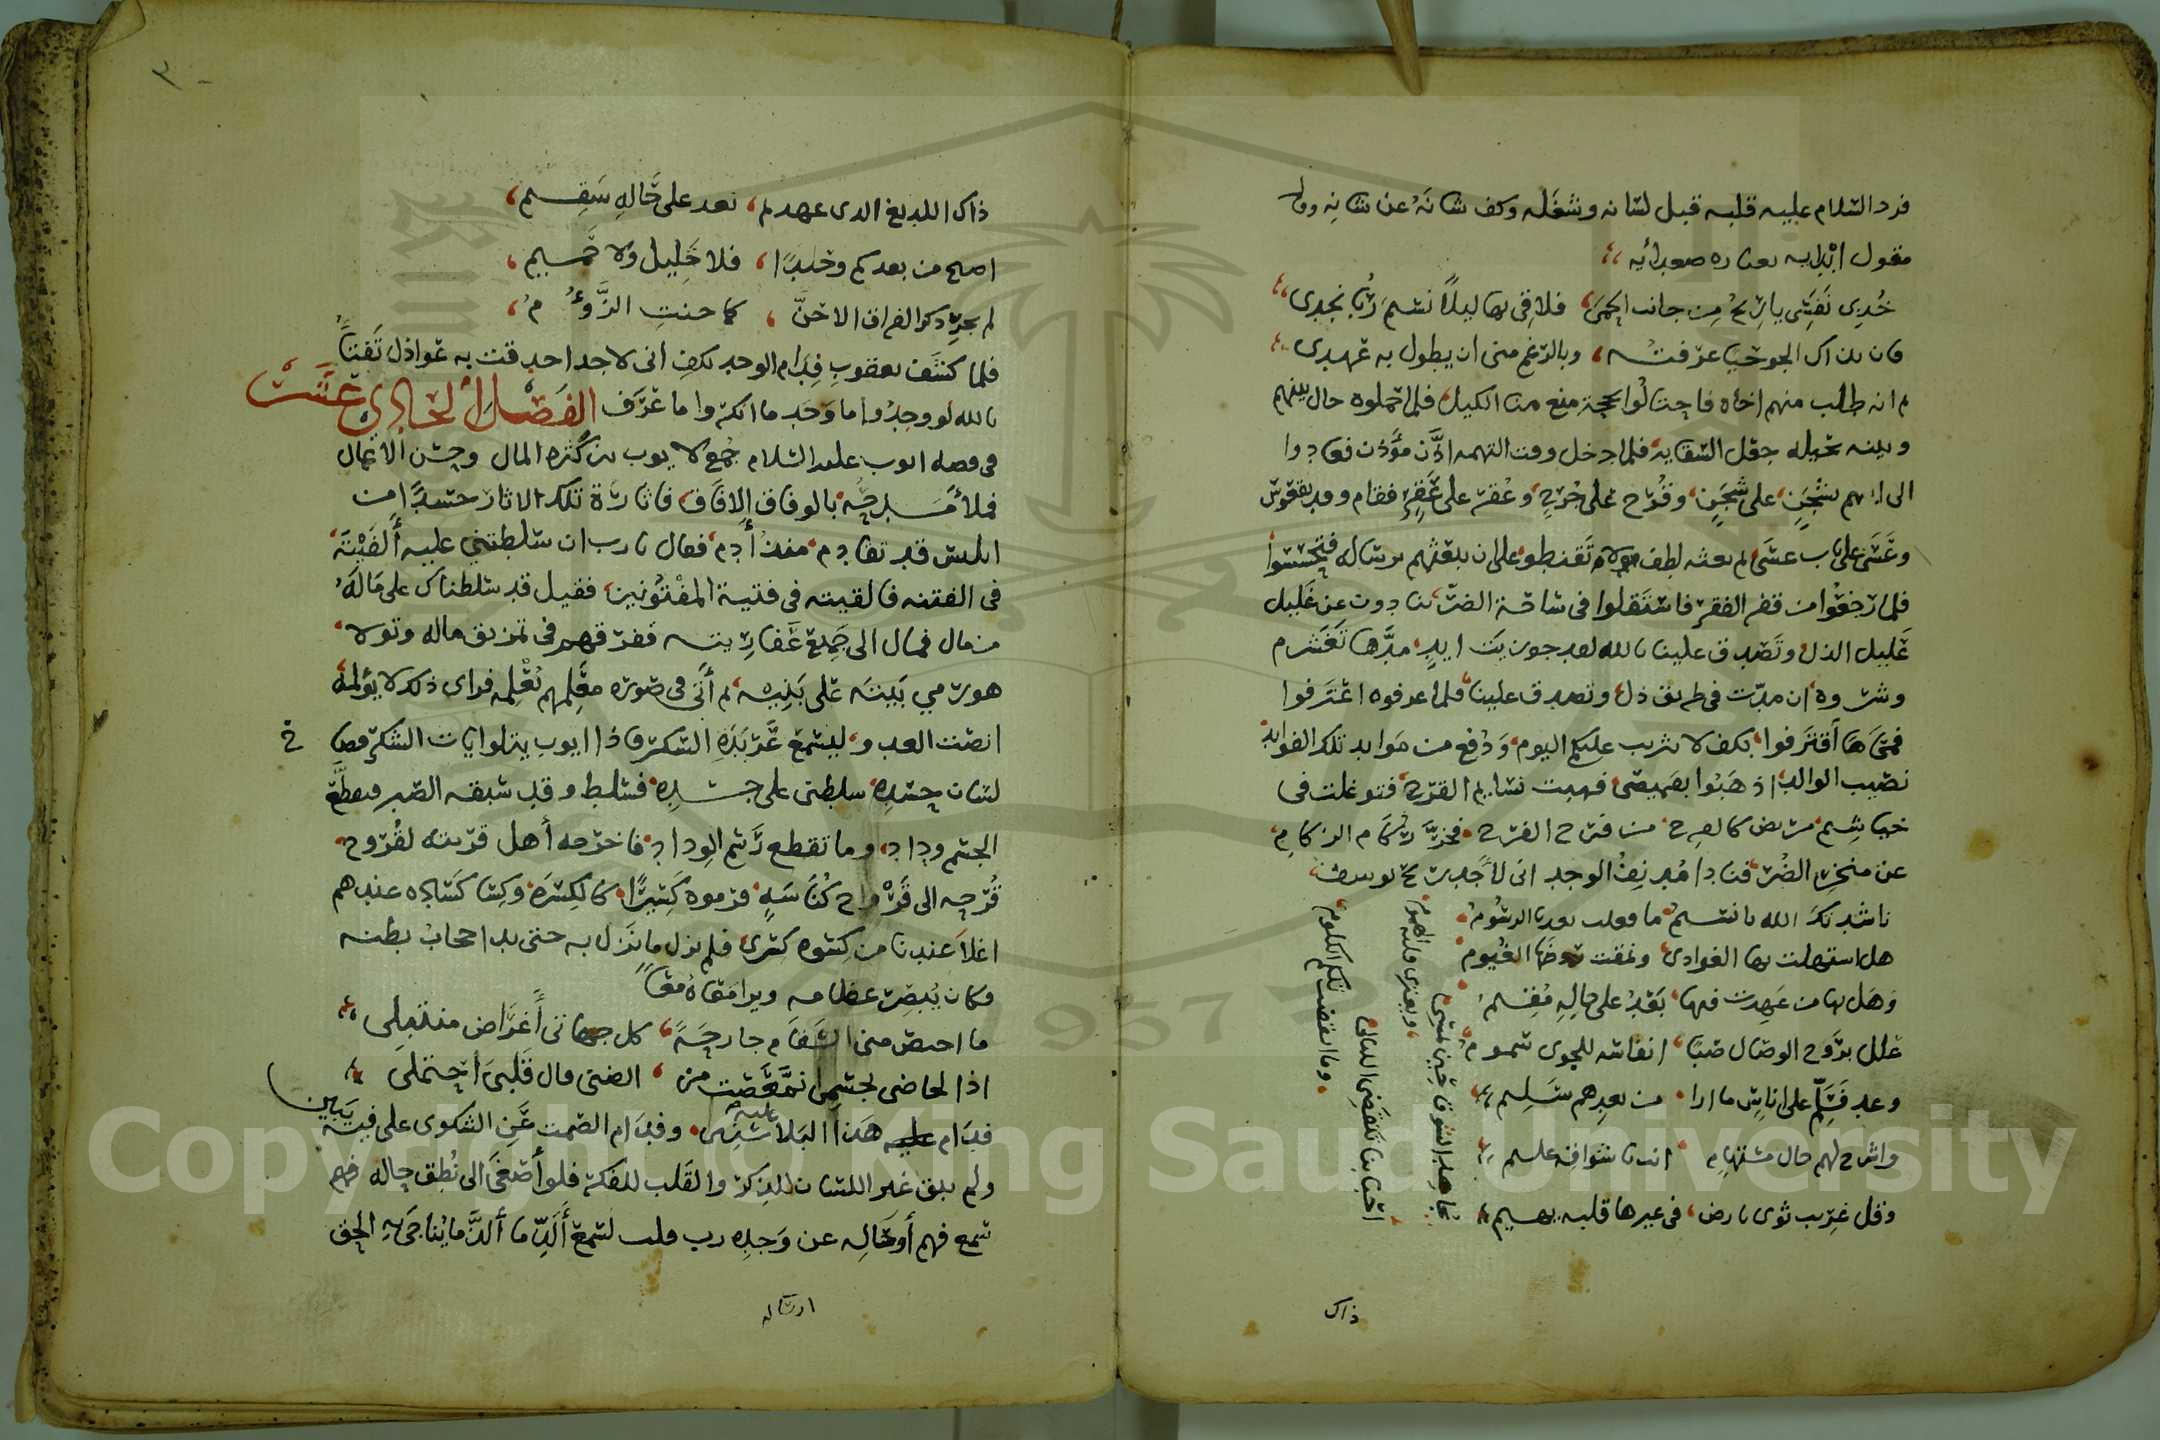 فرد السلام عليه قلبه قبل لسانه وشغله وكف شانه عن شانه
مقول ابلابه صعدائه
خذي نفسي يا ريح من جانب الحمى فلاقي بها ليلا نسيم ربا نجدي
فان بذاك الجو حبا عرفته وبالرغم مني ان يطول به عهدي
ثم انه طالب منهم اخاه فاحتالوا بحجة منع منا الكيل فلما حملوه حال بينهم
وبينه بحيلة جعل السقاية فلما دخل وقت التهمه اذن موذن فعادوا
الى ابيهم بشجن على شجن وقرح على جرح وعقر على عقر فقام وقد تقوس
وعسى على باب عسى لطف تقنطوا على ان بعثهم برساله فتحسسوا
فلما رجعوا من قفر الفقر فاستقلوا في ساحة الضر ينادون عن غليل
غليل الذل وتصدق علينا تالله لقد جوزيت ايد مدها تغشرم
وشروه ان مدت في طريق ذل وتصدق علينا فلما عرفوه اعترفوا
فمحا ما اقترفوا بكف لا تثريب عليكم اليوم ودفع من موايد تلك الفوايد
نصيب الوالد اذهبوا بقميصي فهبت نسايم الفرج فتوغلت في
خياشيم مريض كالفرخ من فرح الفرج فخر ركام الزكام
عن منخر الضر فنادا مدنف الوجد اني لاجد ريح يوسف
ناشدتك الله يا نسيم ما فعلت بعدنا الرسوم
هل استهلت بها الغوادي ونمقت روضها الغيوم
وهل بها من عهدت فيها بعد على حاله مقيم
علل بروح الوصال صبا انفاسه للجوى سموم
وعد فسلم على اناس ما ارا من بعدهم سليم
واشرح لهم حال مستهام انت باشواقه عليم
وقل غريب ثوى بارض في غيرها قلبه يهيم
احبابنا تنقضي الليالي وما انقضت تلكم الكلوم
ذاك
ذاك اللديغ الذي عهدتم بعد على حاله سقيم
اصبح من بعدكم وحيدا فلا خليل ولا حميم
لم يجر ذكر الفراق الا حن كما حنت الرؤم
فلما كشف يعقوب فدام الوجد بكف اني لاجد احدقت به عواذل تفتأ
تالله لو وجدوا ما وجد ما انكروا ما عرف الفصل الحادي عشر
في قصة ايوب عليه السلام جمع لايوب بين كثرة المال وحسن الاعمال
فملأ مدحه بالوفاق الافاق فاثارة تلك الاثار حسدا من
ابليس قد تقادم منذ ادم فقال يا رب ان سلطتني عليه ألفيته
في الفتنه فالقيته في فتية المفتونين فقيل قد سلطناك على ماله
من مال فمال الى جميع عفاريته ففرقهم في تمزيق ماله وتولا
هو رمي بيته على بنيه ثم أتى في صورة معلمهم يعلمه فراى ذلك لا يؤلمه
انصت العدو ليسمع عربدة السكر فاذا ايوب يتلو ايات الشكر
لسان حسده سلطني على جسده فسلط وقد سبقه الصبر فقطع
الجسم وداد وما تقطع رسم الوداد فاخرجه أهل قريته لقروح
قرحه الى قرواح كناسه فرموه كسيرا كالكسره وكسا كساده عندهم
اغلا عندنا من كسوة كسرى فلم يزل ما نزل به حتى بدا حجاب بطنه
فكان يبصر عظامه
ما احتص مني السقام جارحة كل جهاتي أغراض منتبلي
اذا لحاضي لجسمي من الضنى قال قلبي احتملي
فدام عليه هذا البلا سنين وفدام الصمت عن الشكوى على فيه يبين
ولم يبق غير اللسان للذكر والقلب للفكر فلو أصغى الى نطق حاله فهم
سمع فهم أو حاله عن وجده رب قلب لسمع ألذ ما ألذ ما يناجى به الحق
ارساله